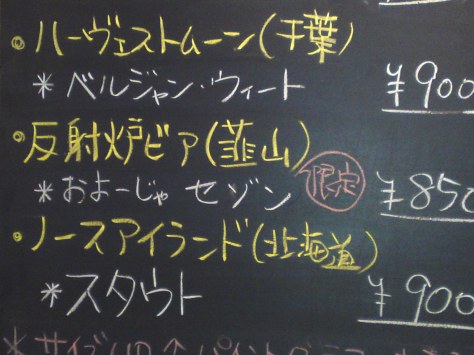 ◎ハーヴェストムーン(千葉)
*ベルジャン・ウィート ¥900
◎反射炉ビア(韮山)
*およーじゃ セゾン 限定 ¥850
・ノースアイランド(北海道)
*スタウト ¥900